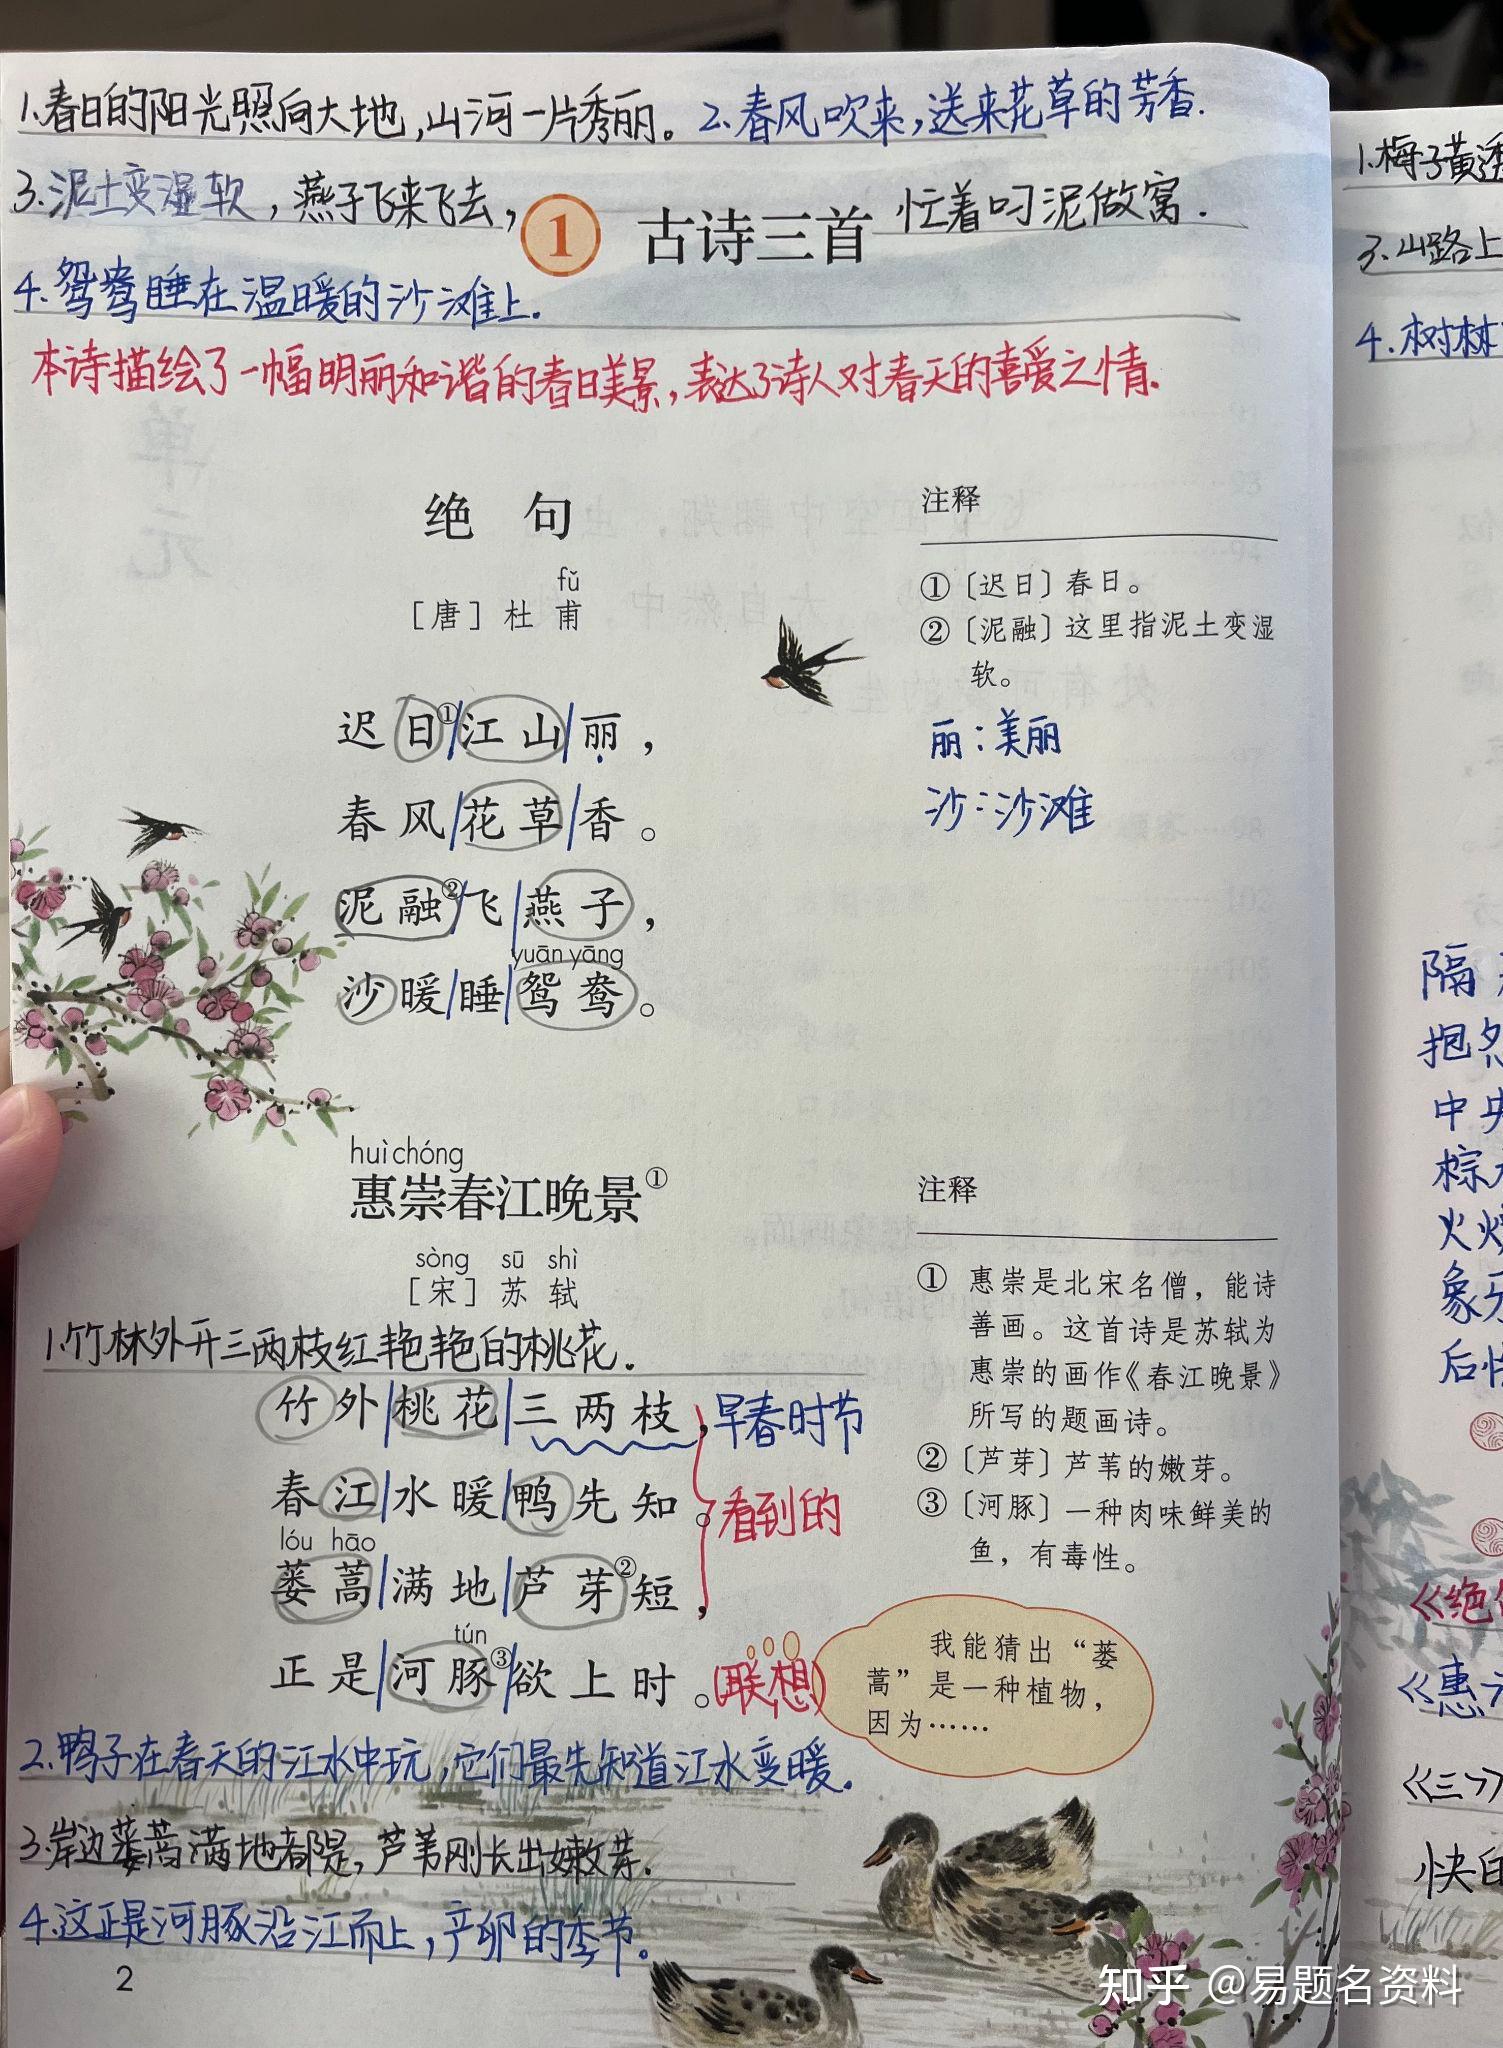 1.春日的阳光照向大地,山河一片秀丽。2.春风吹来,送来花草的芳香.
3.泥土变湿软,燕子飞来飞去,忙着叼泥做窝.
1 古诗三首
4.鸳鸯睡在温暖的沙滩上.
本诗描绘了一幅明丽和谐的春日美景,表达了诗人对春天的喜爱之情.
绝句
fǔ
[唐]杜甫
迟日①江山丽，
春风花草香。
泥融②飞燕子，
yuān yāng
沙暖睡鸳鸯。
注释
①〔迟日〕春日。
②〔泥融〕这里指泥土变湿
软。
丽:美丽
沙:沙滩
huì chóng
惠崇春江晚景①
sòng sū shì
[宋]苏轼
1.竹林外开三两枝红艳艳的桃花.
竹外桃花三两枝，早春时节
春江水暖鸭先知。看到的
lóu hāo
蒌蒿满地芦芽②短，
tún
正是河豚③欲上时。(联想)
2.鸭子在春天的江水中玩,它们最先知道江水变暖.
3.岸边蒌蒿满地都是,芦苇刚长出嫩芽.
4.这正是河豚沿江而上,产卵的季节。
注释
① 惠崇是北宋名僧，能诗
善画。这首诗是苏轼为
惠崇的画作《春江晚景》
所写的题画诗。
②〔芦芽〕芦苇的嫩芽。
③〔河豚〕一种肉味鲜美的
鱼，有毒性。
我能猜出“蒌
蒿”是一种植物，
因为……
2
1.梅子黄透
3.山路上
4.树林
隔
抱怨
中央
棕
火烧
象牙
后
《绝句
《惠
《三》
快的
知乎 @易题名资料